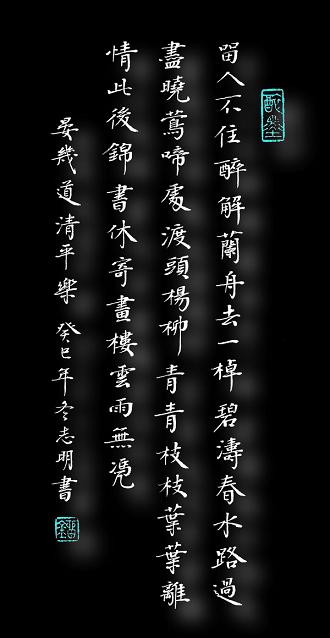 㽞人不住醉解蘭舟去一棹碧濤春水路過
盡曉鶯啼處渡頭楊柳青青枝枝葉葉離
情此後錦書休寄畫樓雲雨無凴
晏幾道清平樂 癸巳年冬志明書